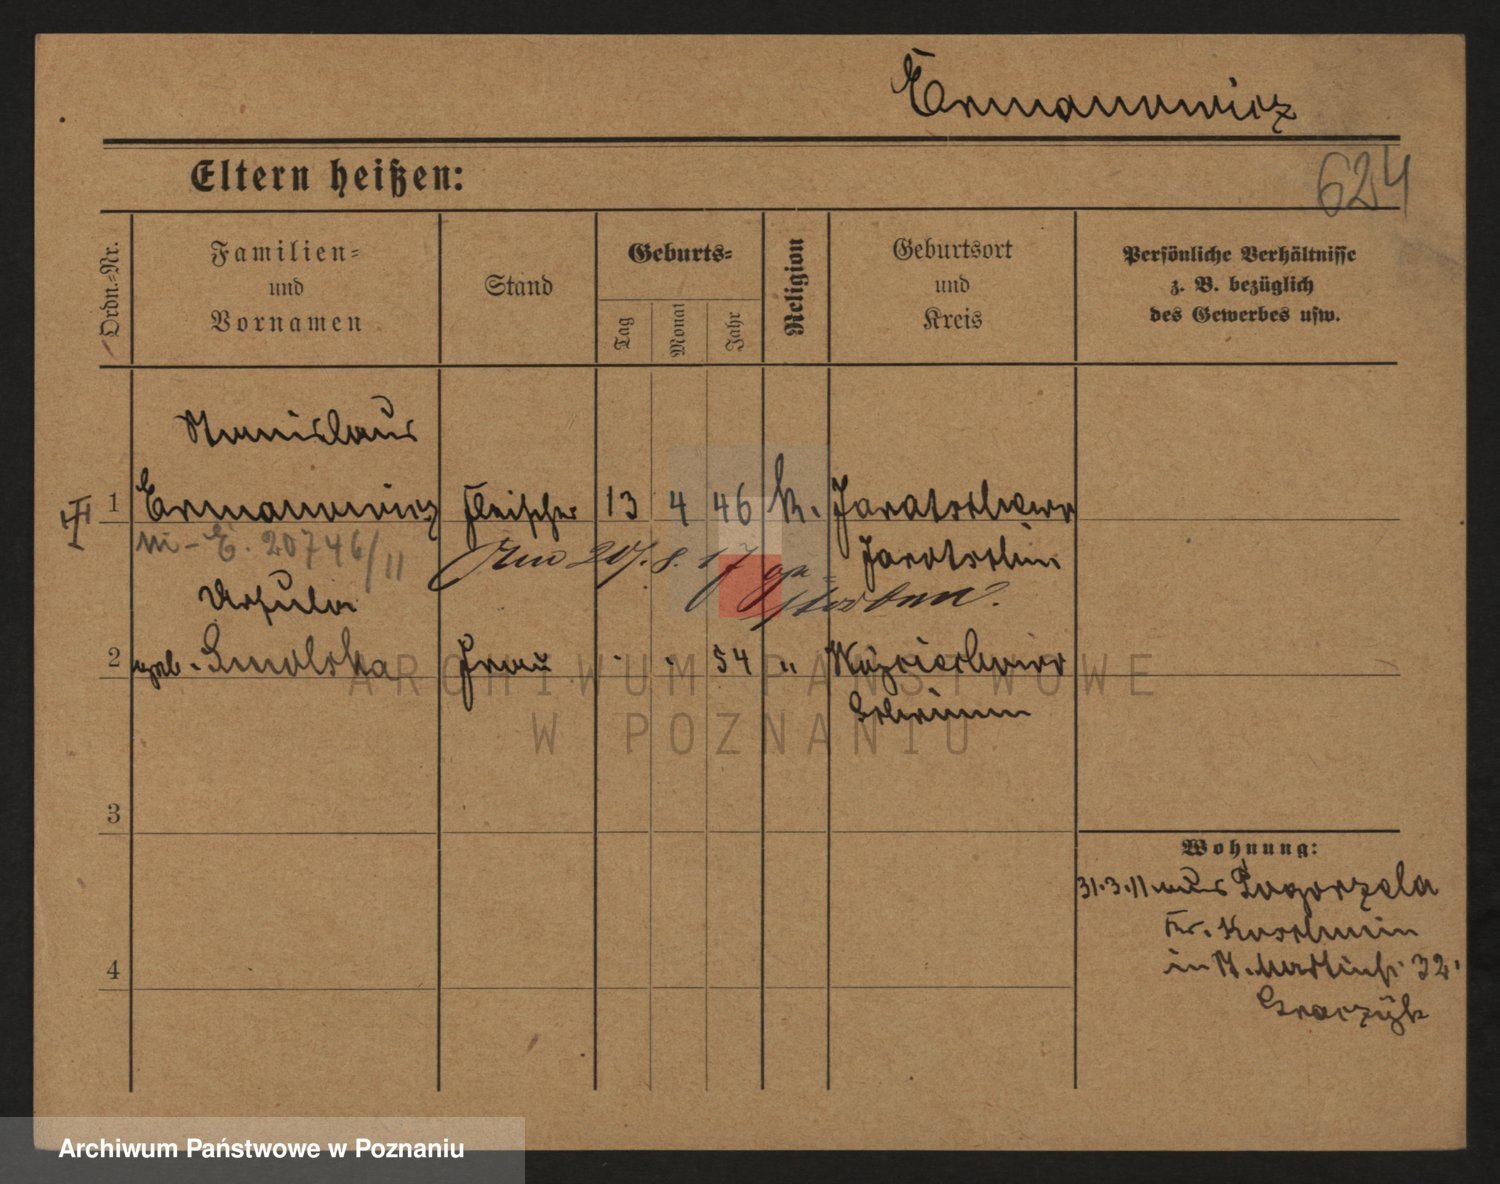 Ermanowicz
624
Eltern heißen:
Ordn.-Nr.
Familien-
und
Vornamen
Stand
Geburts-
Tag
Monat
Jahr
Religion
Geburtsort
und
Kreis
Persönliche Verhältnisse
z. B. bezüglich
des Gewerbes usw.
Stanislaus
1 Ermanowicz Fleischer 13 4 46 k. Jaratschewo
Jarotschin
E. 20746/II
Am 27. 8. 17 ge-
storben.
Ursula
2 geb. Smolska Frau . . 54 "
Schrimm
3
4
Wohnung:
31.3.11. aus Pogorzela
Kr. Koschmin
in St. Martinstr. 32.
Graczyk
ARCHIWUM PAŃSTWOWE
W POZNANIU
Archiwum Państwowe w Poznaniu